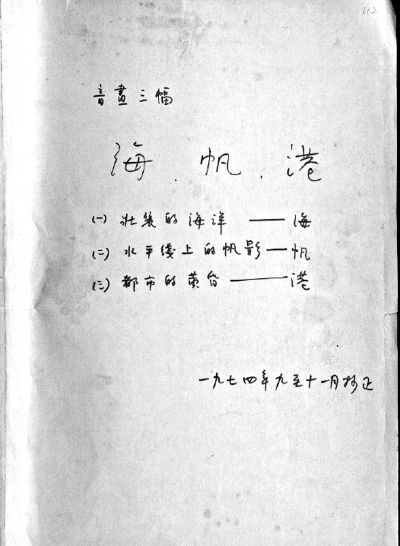 音畫三幅
海．帆．港
(一) 壯的海洋——海
(二) 水平綫上的帆影—帆
(三) 都市的黄昏——港
一九七四年九至十一月抄正